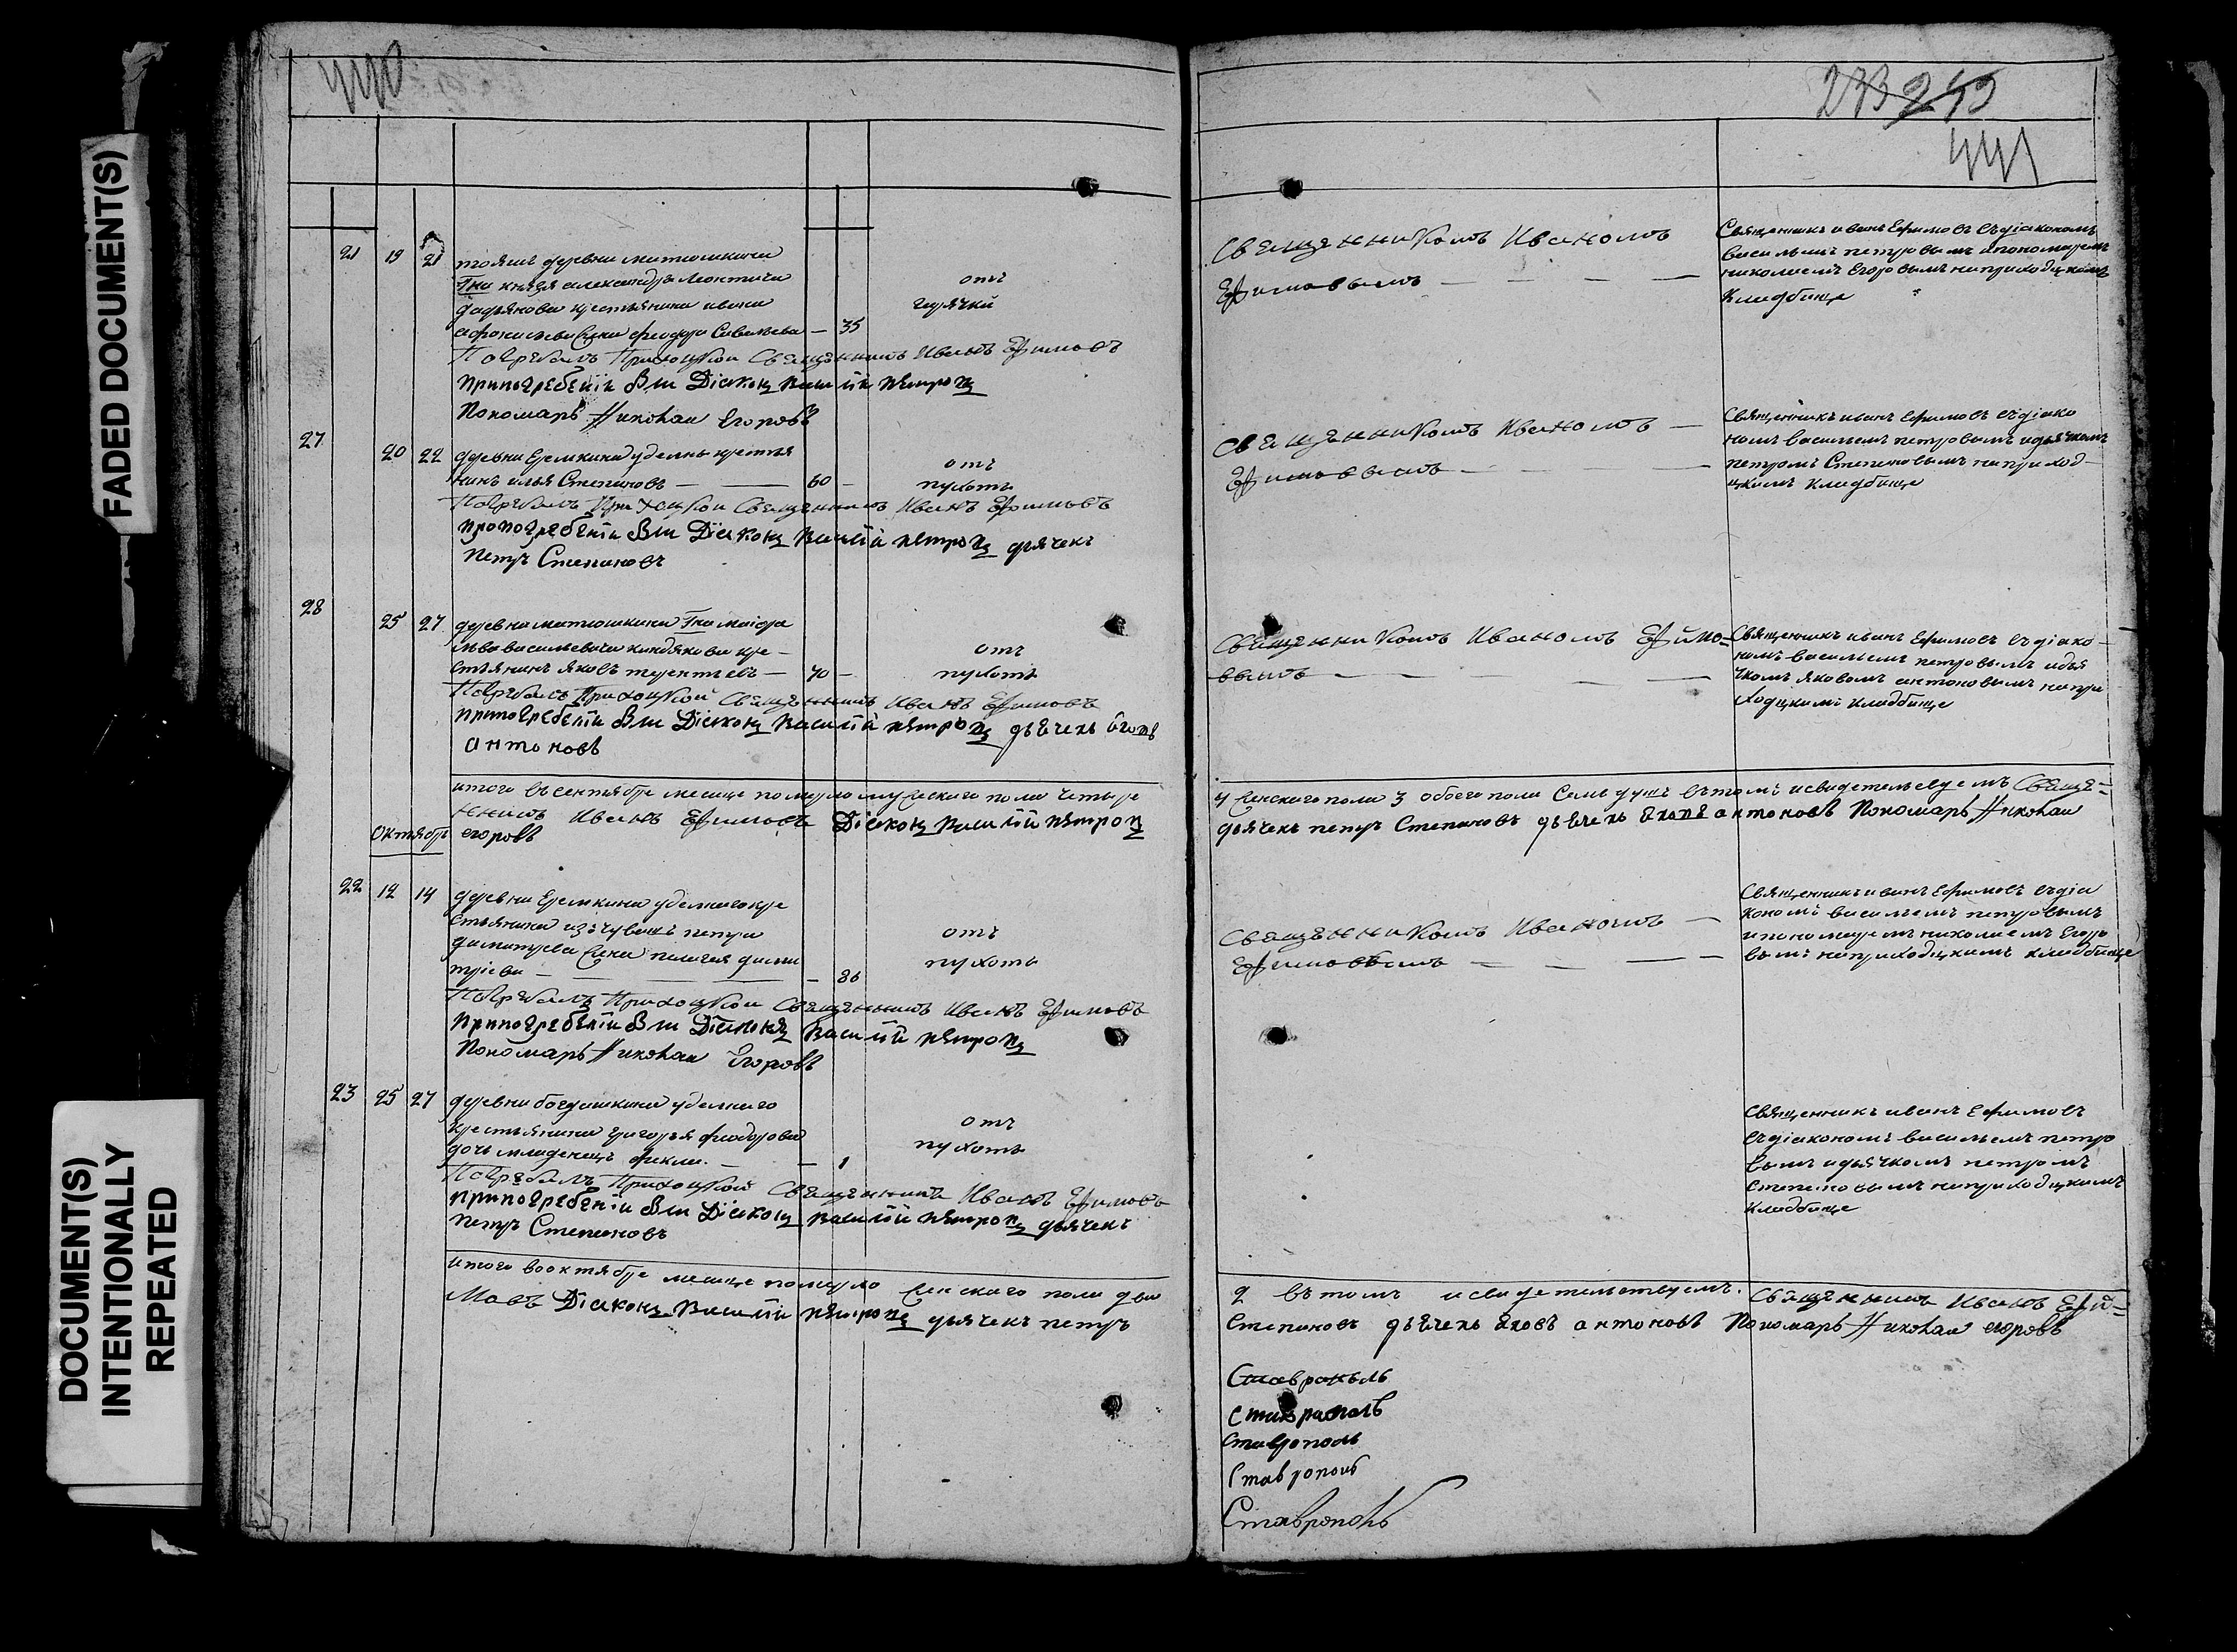 FADED DOCUMENT(S)
DOCUMENT(S)
INTENTIONALLY
REPEATED
440
273 249
441
21 19 21 тояжъ деревни матюшкина
Гна князя александра Леонтича
дадьянова крестьянина ивана
жена феодора Савельева — 35
отъ
горячки
Погребалъ Приходцкои Священникъ Иванъ Ефимовъ
при погребении были Дiаконъ василiй петровъ
Пономарь Николаи Егоровъ
Священникомъ Иваномъ
Ефимовымъ — — — —
Священникъ иванъ Ефимовъ съдiакономъ
васильемъ петровымъ и пономаремъ
николаемъ Егоровымъ наприходцкомъ
Кладбище
27 20 22 деревни Еремкина уделны крестья
нинъ илья Степановъ — — 60 —
отъ
пухоты
Погребалъ Приходцкои Священникъ Иванъ Ефимовъ
при погребении были Дiаконъ василiй петровъ дьячекъ
петръ Степановъ
Священникомъ Иваномъ —
Ефимовымъ — — — —
Священникъ иванъ Ефимовъ съдiако
номъ васильемъ петровымъ идьячкомъ
петромъ Степановымъ наприход-
цкомъ кладбище
28 25 27 деревни матюшкина Гна маiора
льва васильевича кре-
стьянинъ яковъ терентьевъ — 70 —
отъ
пухоты
Погребалъ Приходцкой Священникъ Иванъ Ефимовъ
при погребении были Дiаконъ василiй петровъ дьячекъ яковъ
антоновъ
Священникомъ Иваномъ Ефимо-
вымъ — — — —
Священникъ иванъ Ефимовъ съдiако-
номъ васильемъ петровымъ идья
чкомъ яковомъ антоновымъ напри
ходцкомъ кладбище
итого въсентябре месяце померло мужскаго пола четыре
4 женскаго пола 3 обоего пола Семь душъ вътомъ исвидетельсвуемъ Свяще-
нникъ Иванъ Ефимовъ Дiаконъ василiй петровъ
дьячекъ петръ Степановъ дьячекъ яковъ антоновъ Пономарь Николаи
Октябрь егоровъ
22 12 14 деревни Еремкина уделнаго кре
стьянина изъчувашъ петра
димитрева жена пелагея дими
трiева — — — 80
отъ
пухоты
Погребалъ Приходцкои Священникъ Иванъ Ефимовъ
при погребении были Дiаконъ василiй петровъ
Пономарь Николаи Егоровъ
Священникомъ Иваномъ —
Ефимовымъ — — — —
Священникъ иванъ Ефимовъ съдiа
кономъ васильемъ петровымъ
ипономаремъ николаемъ Егоро
вымъ наприходцкомъ кладбище
23 25 27 деревни богдашкина уделнаго
крестьянина григорья феодорова
дочь младенецъ фекла. — — 1
отъ
пухоты
Погребалъ Приходцкой Священникъ Иванъ Ефимовъ
при погребении были Дiаконъ василiй петровъ дьячекъ
петръ Степановъ
Священникъ иванъ Ефимовъ
съдiакономъ васильемъ петро
вымъ идьячкомъ петромъ
степановымъ наприходцкомъ
кладбище
итого вооктябре месяце померло женскаго пола две
2 вътомъ исвидетельствуемъ. Священникъ Иванъ Ефи-
мовъ Дiаконъ василiй петровъ дьячекъ петръ
Степановъ дьячекъ яковъ антоновъ Пономарь Николаи егоровъ
Ставрополь
Ставрополь
Ставрополь
Ставрополь
Ставрополь